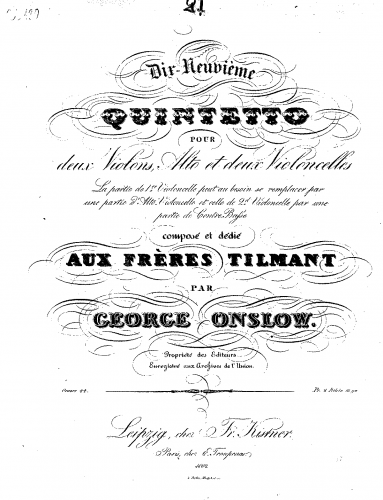 Dix-Neuvième
QUINTETTO
POUR
deux Violons, Alto et deux Violoncelles
La partie de 1er Violoncelle peut au besoin se remplacer par
une partie d'Alto Violoncelle et celle de 2d Violoncelle par une
partie de Contre Basse
composé et dédié
AUX FRÈRES TILMANT
PAR
GEORGE ONSLOW.
Propriété des Editeurs.
Enregistré aux Archives de l'Union.
Oeuvre 44.
Leipzig, chez Fr. Kistner.
Paris, chez